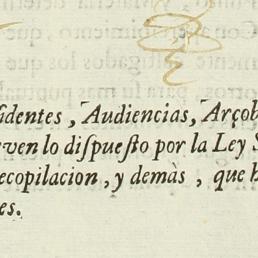 ſidentes, Audiencias, Arçob
even lo diſpueſto por la Ley S
ecopilacion, y demàs, que h
es.